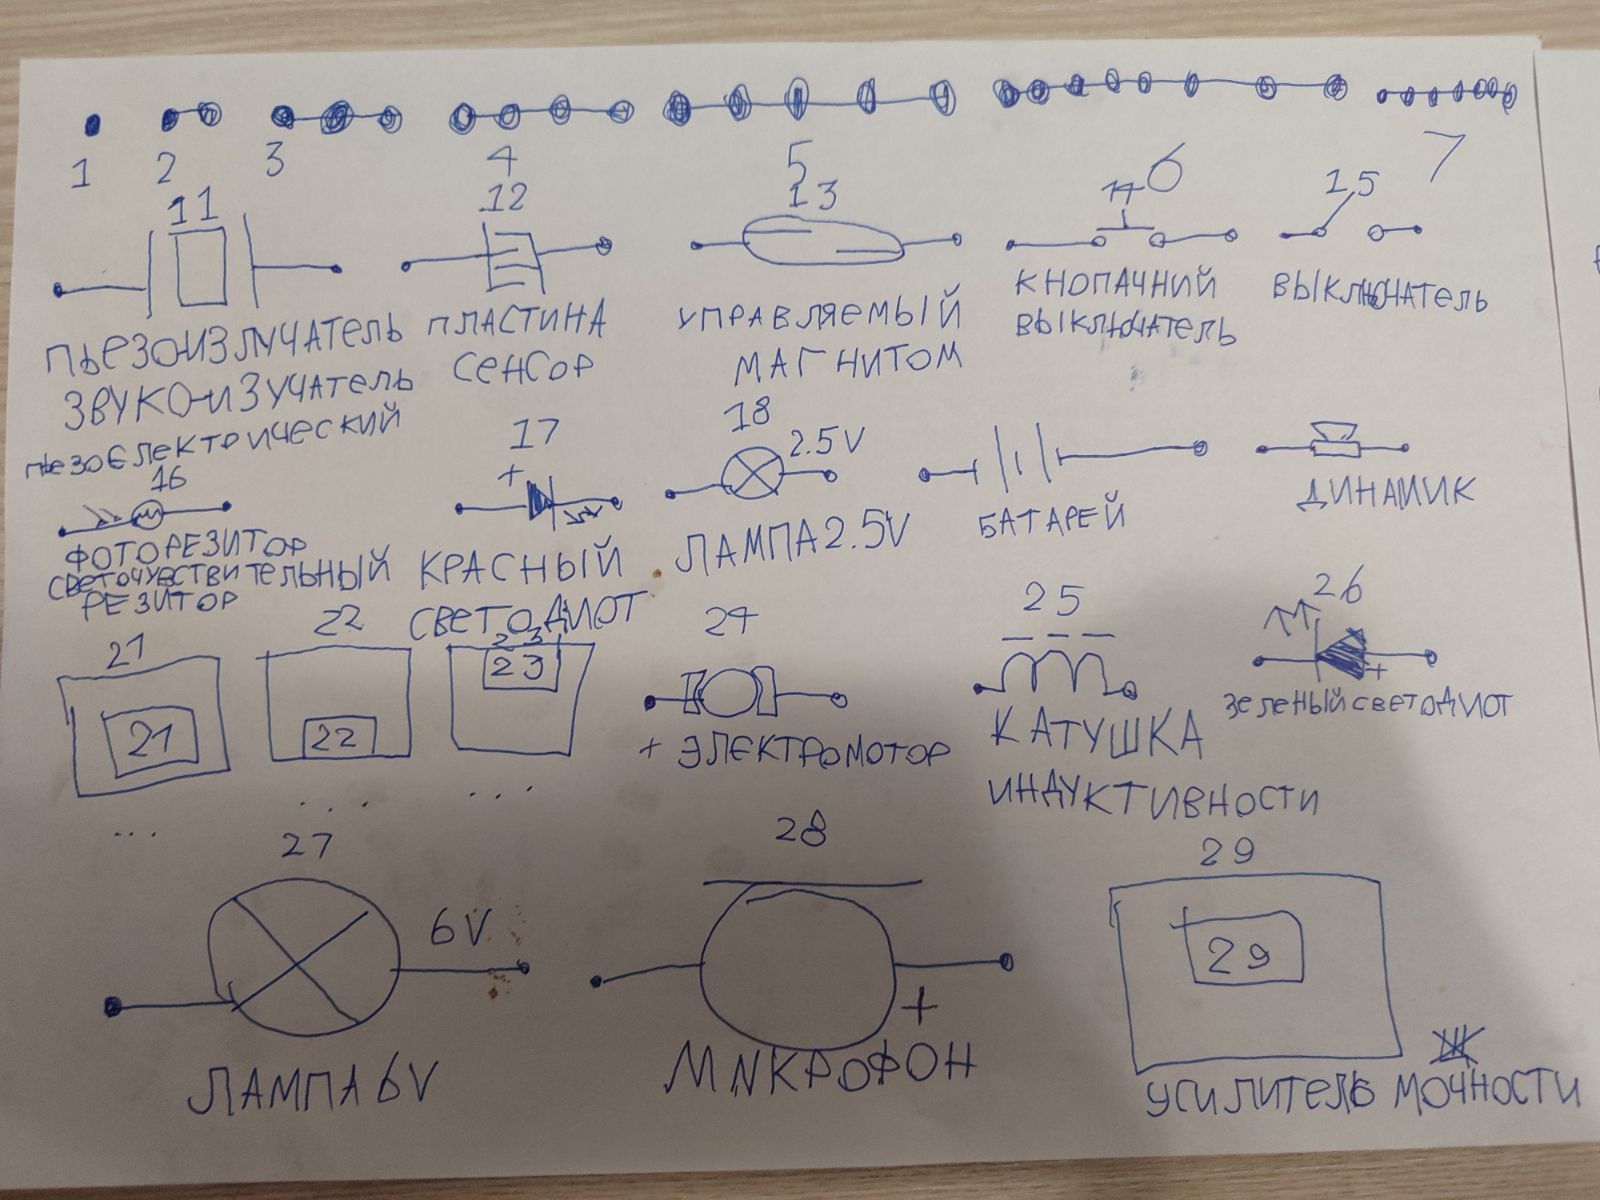 1 2 3 4 5 6 7
11 12 13 14 15
ПЬЕЗОИЗЛУЧАТЕЛЬ
ЗВУКО-ИЗУЧАТЕЛЬ
пьезоЄлектрический
ПЛАСТИНА
СЕНСОР
УПРАВЛЯЕМЫЙ
МАГНИТОМ
КНОПАЧНИЙ
ВЫКЛЮЧАТЕЛЬ
ВЫКЛЮЧАТЕЛЬ
16 17 18
+ 2.5V
ФОТОРЕЗИТОР
СВЕТОЧУВСТВИТЕЛЬНЫЙ
РЕЗИТОР
КРАСНЫЙ
СВЕТОДИОТ
ЛАМПА 2.5V
БАТАРЕЙ
ДИНАМИК
21 22 23 24 25 26
21 22 23
... ... ...
+ ЭЛЕКТРОМОТОР
КАТУШКА
ИНДУКТИВНОСТИ
+
ЗЕЛЕНЫЙ СВЕТОДИОТ
27 28 29
6V + 29
ЛАМПА 6V
МИКРОФОН
УСИЛИТЕЛЬ МОЧНОСТИ